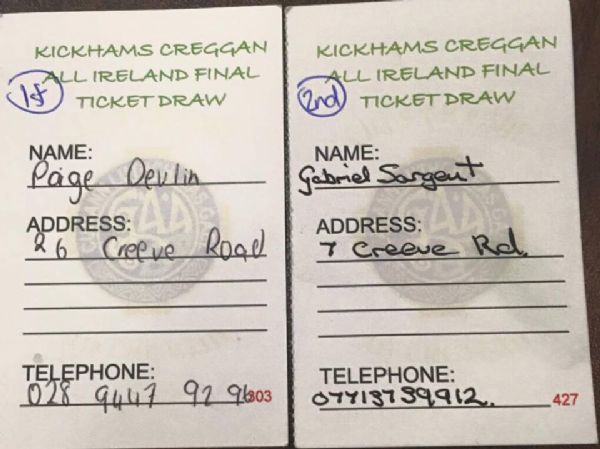 KICKHAMS CREGGAN
ALL IRELAND FINAL
1st TICKET DRAW
NAME:
Paige Devlin
ADDRESS:
26 Creeve Road
TELEPHONE:
028 9447 92 96
303
KICKHAMS CREGGAN
ALL IRELAND FINAL
2nd TICKET DRAW
NAME:
Gabriel Sargent
ADDRESS:
7 Creeve Rd.
TELEPHONE:
07713739912.
427